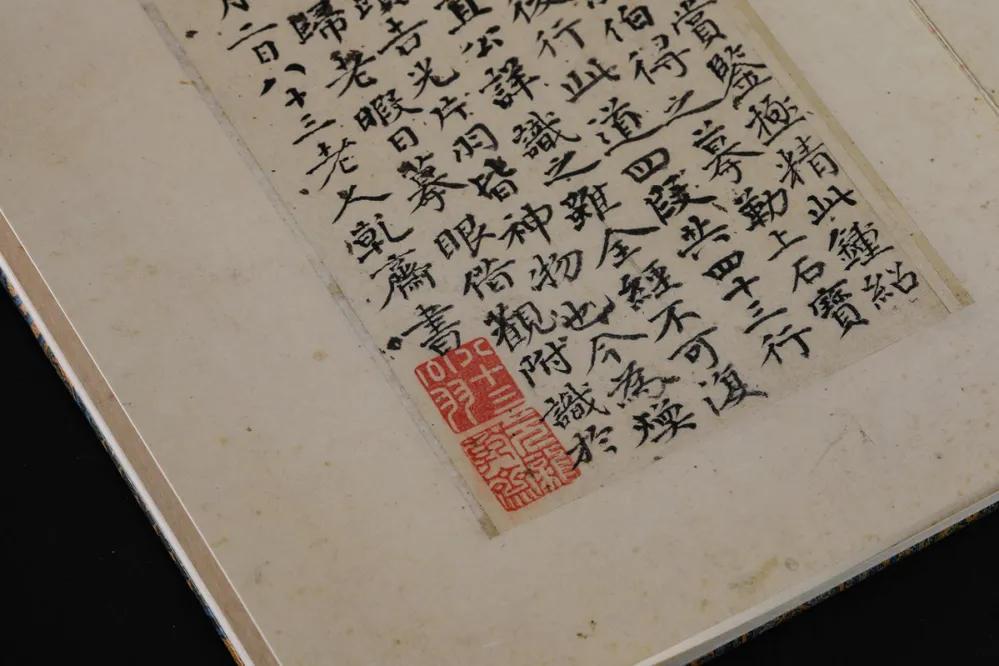 賞鑒極精此鍾紹
伯得之摹勒上石寶
後行此道四段共四十三行
直公詳識之雖全經不可復
吉光片羽皆神物也今為煥
歸老暇日摹眼偕觀附識於
二日八十三老人乾齋書
元龍
乾齋